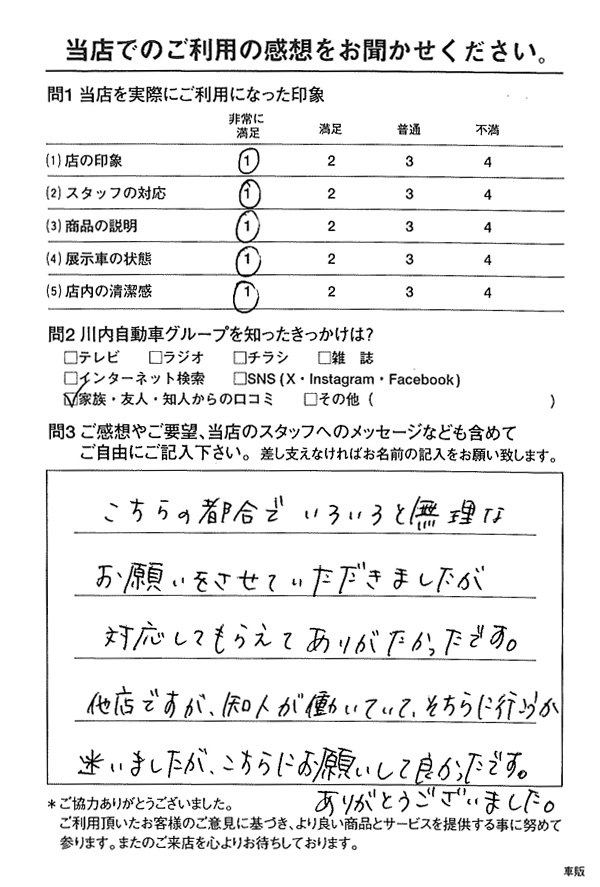 当店でのご利用の感想をお聞かせください。
問1 当店を実際にご利用になった印象
非常に満足 満足 普通 不満
(1) 店の印象 1 2 3 4
(2) スタッフの対応 1 2 3 4
(3) 商品の説明 1 2 3 4
(4) 展示車の状態 1 2 3 4
(5) 店内の清潔感 1 2 3 4
問2 川内自動車グループを知ったきっかけは?
□テレビ □ラジオ □チラシ □雑 誌
□インターネット検索 □SNS (X・Instagram・Facebook)
☑家族・友人・知人からの口コミ □その他 ( )
問3 ご感想やご要望、当店のスタッフへのメッセージなども含めて
ご自由にご記入下さい。差し支えなければお名前の記入をお願い致します。
こちらの都合で いろいろと無理な
お願いをさせていただきましたが
対応してもらえて ありがたかったです。
他店ですが、知人が働いていて、そちらに行こうか
迷いましたが、こちらにお願いして良かったです。
ありがとうございました。
*ご協力ありがとうございました。
ご利用頂いたお客様のご意見に基づき、より良い商品とサービスを提供する事に努めて
参ります。またのご来店を心よりお待ちしております。
車販